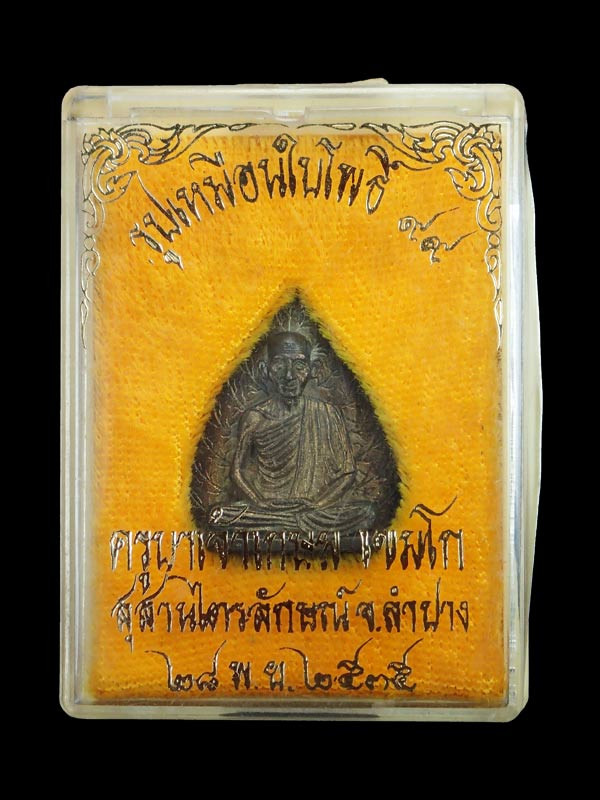 รูปเหมือนใบโพธิ์
๘๑
ครูบาเจ้าเกษม เขมโก
สุสานไตรลักษณ์ จ.ลำปาง
๒๘ พ.ย. ๒๕๓๕